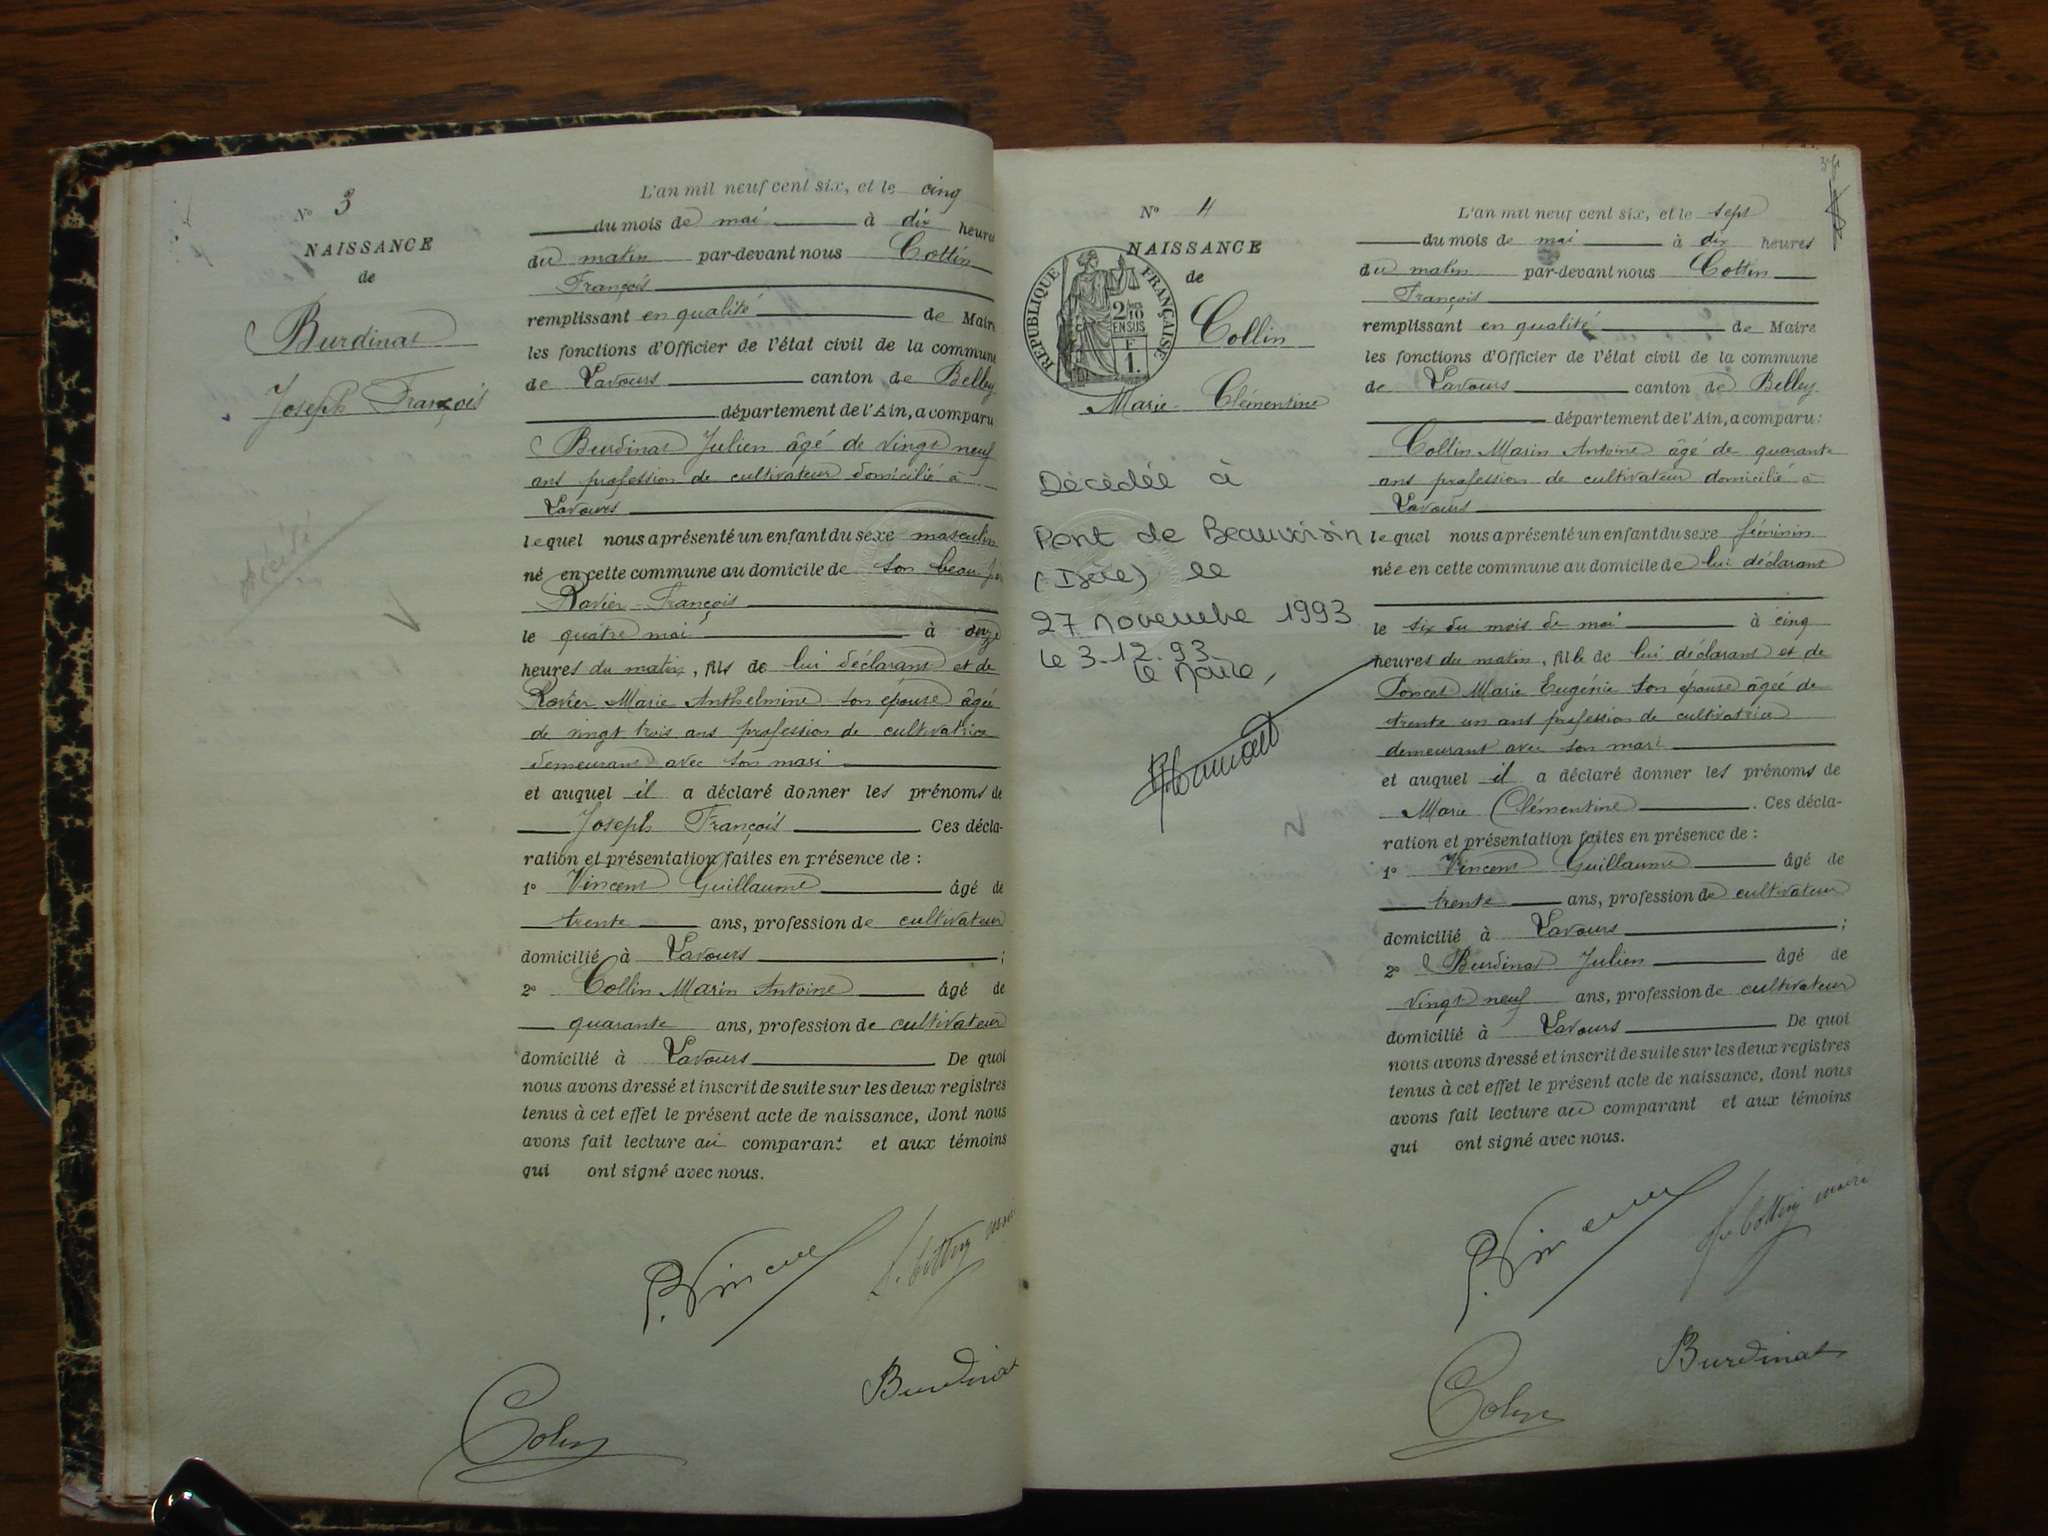 N° 3
NAISSANCE
de
Burdinat
Joseph François
décédé
L'an mil neuf cent six, et le cinq
du mois de mai à dix heures
du matin par-devant nous Cottin
François
remplissant en qualité de Maire
les fonctions d'Officier de l'état civil de la commune
de Lavours canton de Belley
département de l'Ain, a comparu
Burdinat Julien âgé de vingt neuf
ans profession de cultivateur domicilié à
Lavours
lequel nous a présenté un enfant du sexe masculin
né en cette commune au domicile de son beau
Ravier François
le quatre mai à onze
heures du matin, fils de lui déclarant et de
Ravier Marie Anthelmine son épouse âgée
de vingt trois ans profession de cultivatrice
demeurant avec son mari
et auquel il a déclaré donner les prénoms de
Joseph François Ces décla-
ration et présentation faites en présence de :
1° Vincent Guillaume âgé de
trente ans, profession de cultivateur
domicilié à Lavours ;
2° Collin Marin Antoine âgé de
quarante ans, profession de cultivateur
domicilié à Lavours De quoi
nous avons dressé et inscrit de suite sur les deux registres
tenus à cet effet le présent acte de naissance, dont nous
avons fait lecture au comparant et aux témoins
qui ont signé avec nous.
Burdinat
N° 4
NAISSANCE
de
RÉPUBLIQUE FRANÇAISE
2/10
EN SUS
1.
Collin
Marie Clémentine
Décédée à
Pont de Beauvoisin
(Isère) le
27 novembre 1993
le 3.12.93
le Maire,
L'an mil neuf cent six, et le sept
du mois de mai à dix heures
du matin par-devant nous Cottin
François
remplissant en qualité de Maire
les fonctions d'Officier de l'état civil de la commune
de Lavours canton de Belley
département de l'Ain, a comparu :
Collin Marin Antoine âgé de quarante
ans profession de cultivateur domicilié à
Lavours
lequel nous a présenté un enfant du sexe féminin
née en cette commune au domicile de lui déclarant
le six du mois de mai à cinq
heures du matin, fille de lui déclarant et de
Poncet Marie Eugénie son épouse âgée de
trente un ans profession de cultivatrice
demeurant avec son mari
et auquel il a déclaré donner les prénoms de
Marie Clémentine . Ces décla-
ration et présentation faites en présence de :
1° Vincent Guillaume âgé de
trente ans, profession de cultivateur
domicilié à Lavours ;
2° Burdinat Julien âgé de
vingt neuf ans, profession de cultivateur
domicilié à Lavours De quoi
nous avons dressé et inscrit de suite sur les deux registres
tenus à cet effet le présent acte de naissance, dont nous
avons fait lecture au comparant et aux témoins
qui ont signé avec nous.
Burdinat